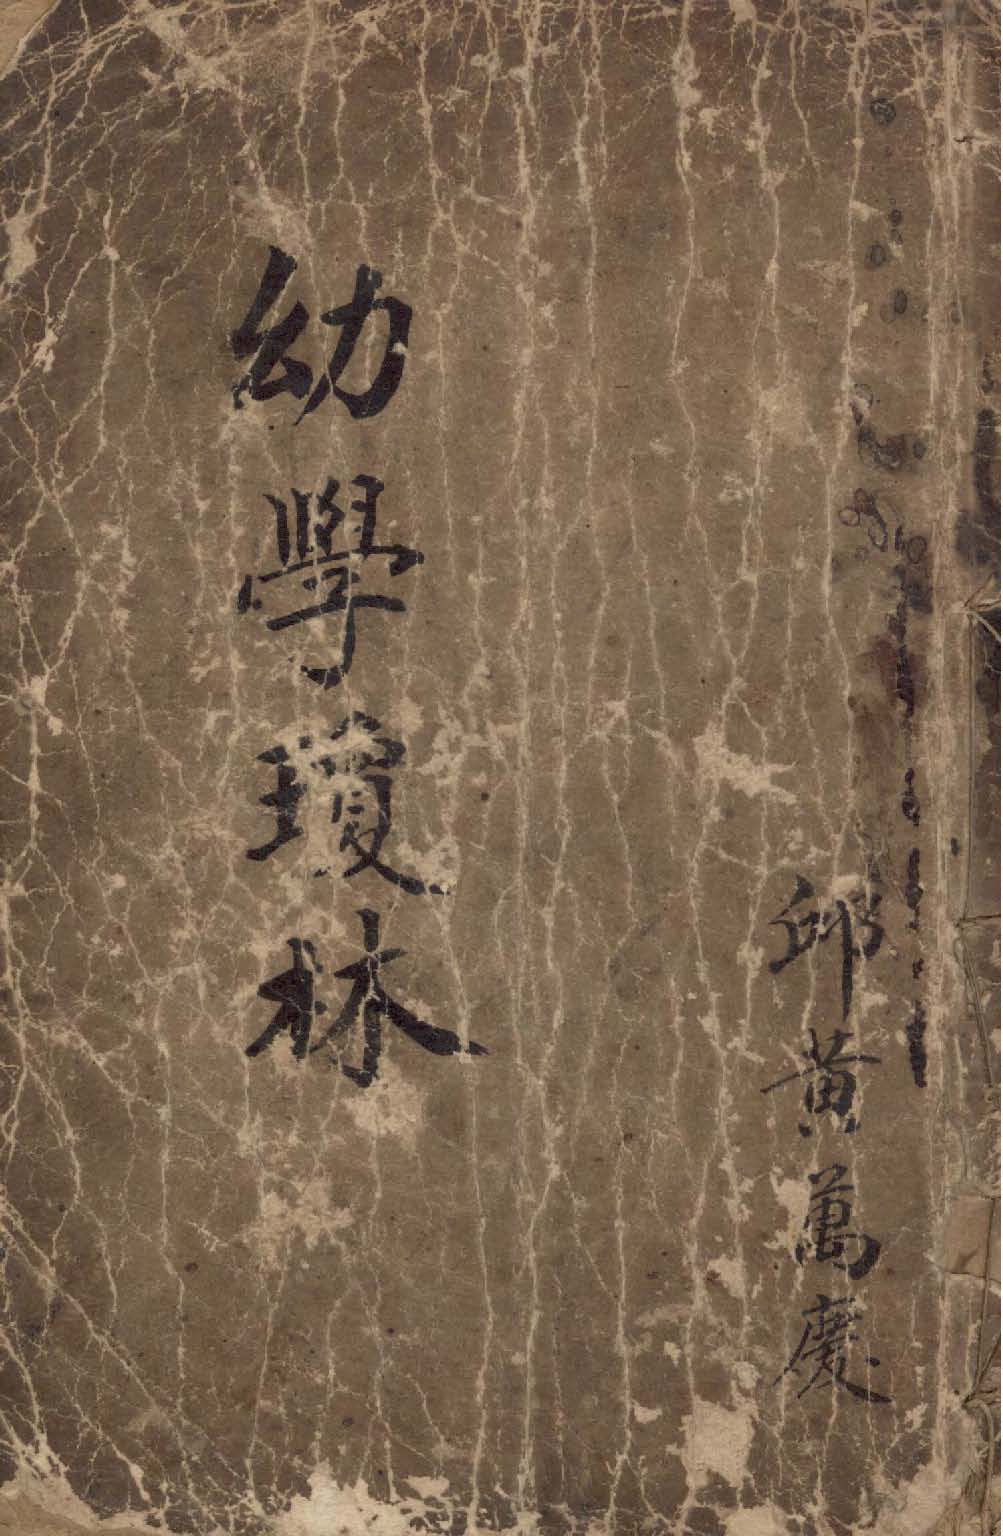 邱黃萬慶
幼學瓊林